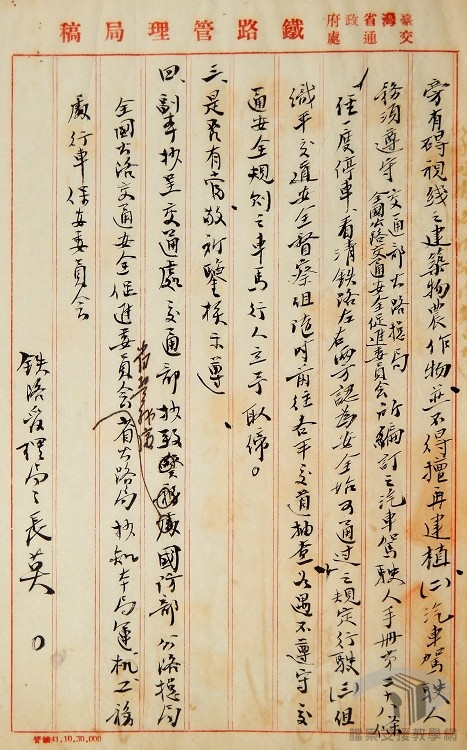 臺灣省政府交通處鐵路管理局稿
旁有碍視线之建築物農作物並不得擅再建植(二)汽車駕駛人
務須遵守交通部公路總局全國公路交通安全促進委員會所編訂之汽車駕駛人手冊第二十八條
住一度停車看清铁路左右两方認為安全始可通过之規定行駛(三)组
織平交道安全督察组随时前往各平交道抽查如遇不遵守交
通安全規則之車馬行人立予取缔。
三、是否有當敬祈鑒核示遵
四、副本抄呈交通處交通部抄致省警務處國防部公路總局
全國公路交通安全促進委員會省公路局抄知本局運机工務
處行車保安委員会
铁路管理局局長莫 〇
管檢41.10.30,000
檔案支援教學網